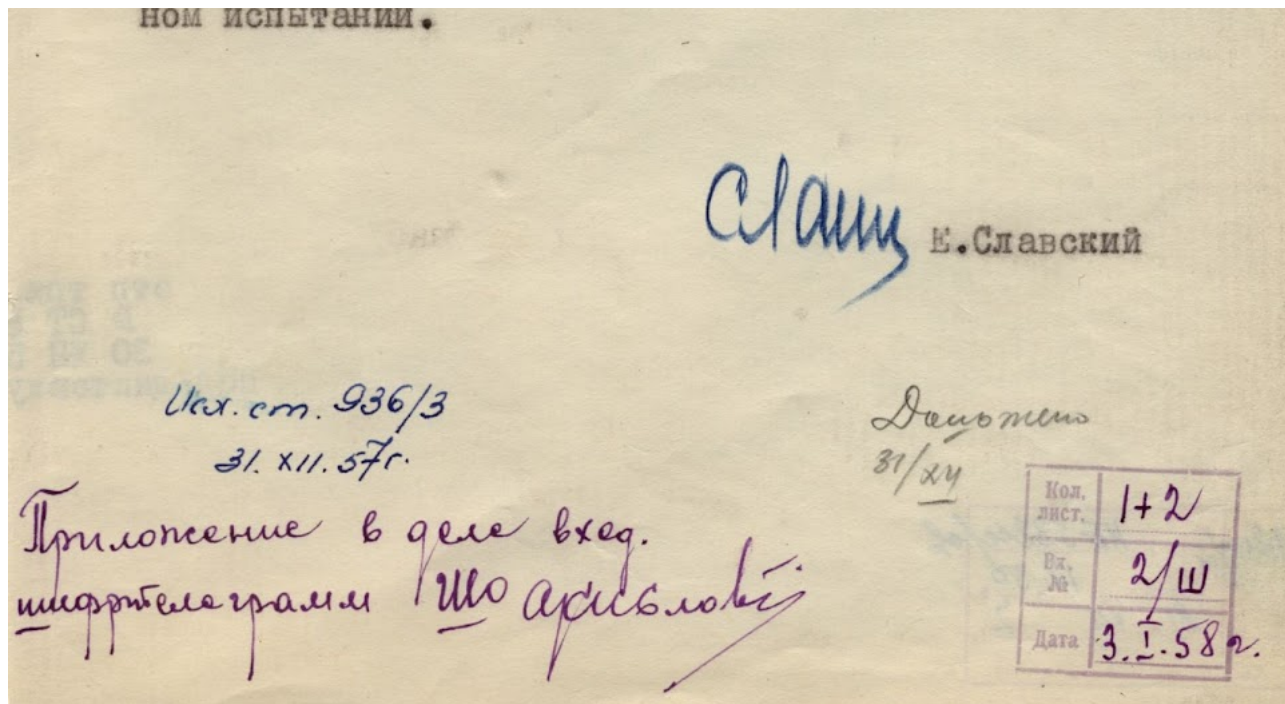 ном испытании.
Е.Славский
Исх. ст. 936/3
31.XII.57г.
Доложено
31/XII
Приложение в деле вход.
шифртелеграмм ШО
Кол. лист. 1+2
Вх. № 2/Ш
Дата 3.I.58 г.